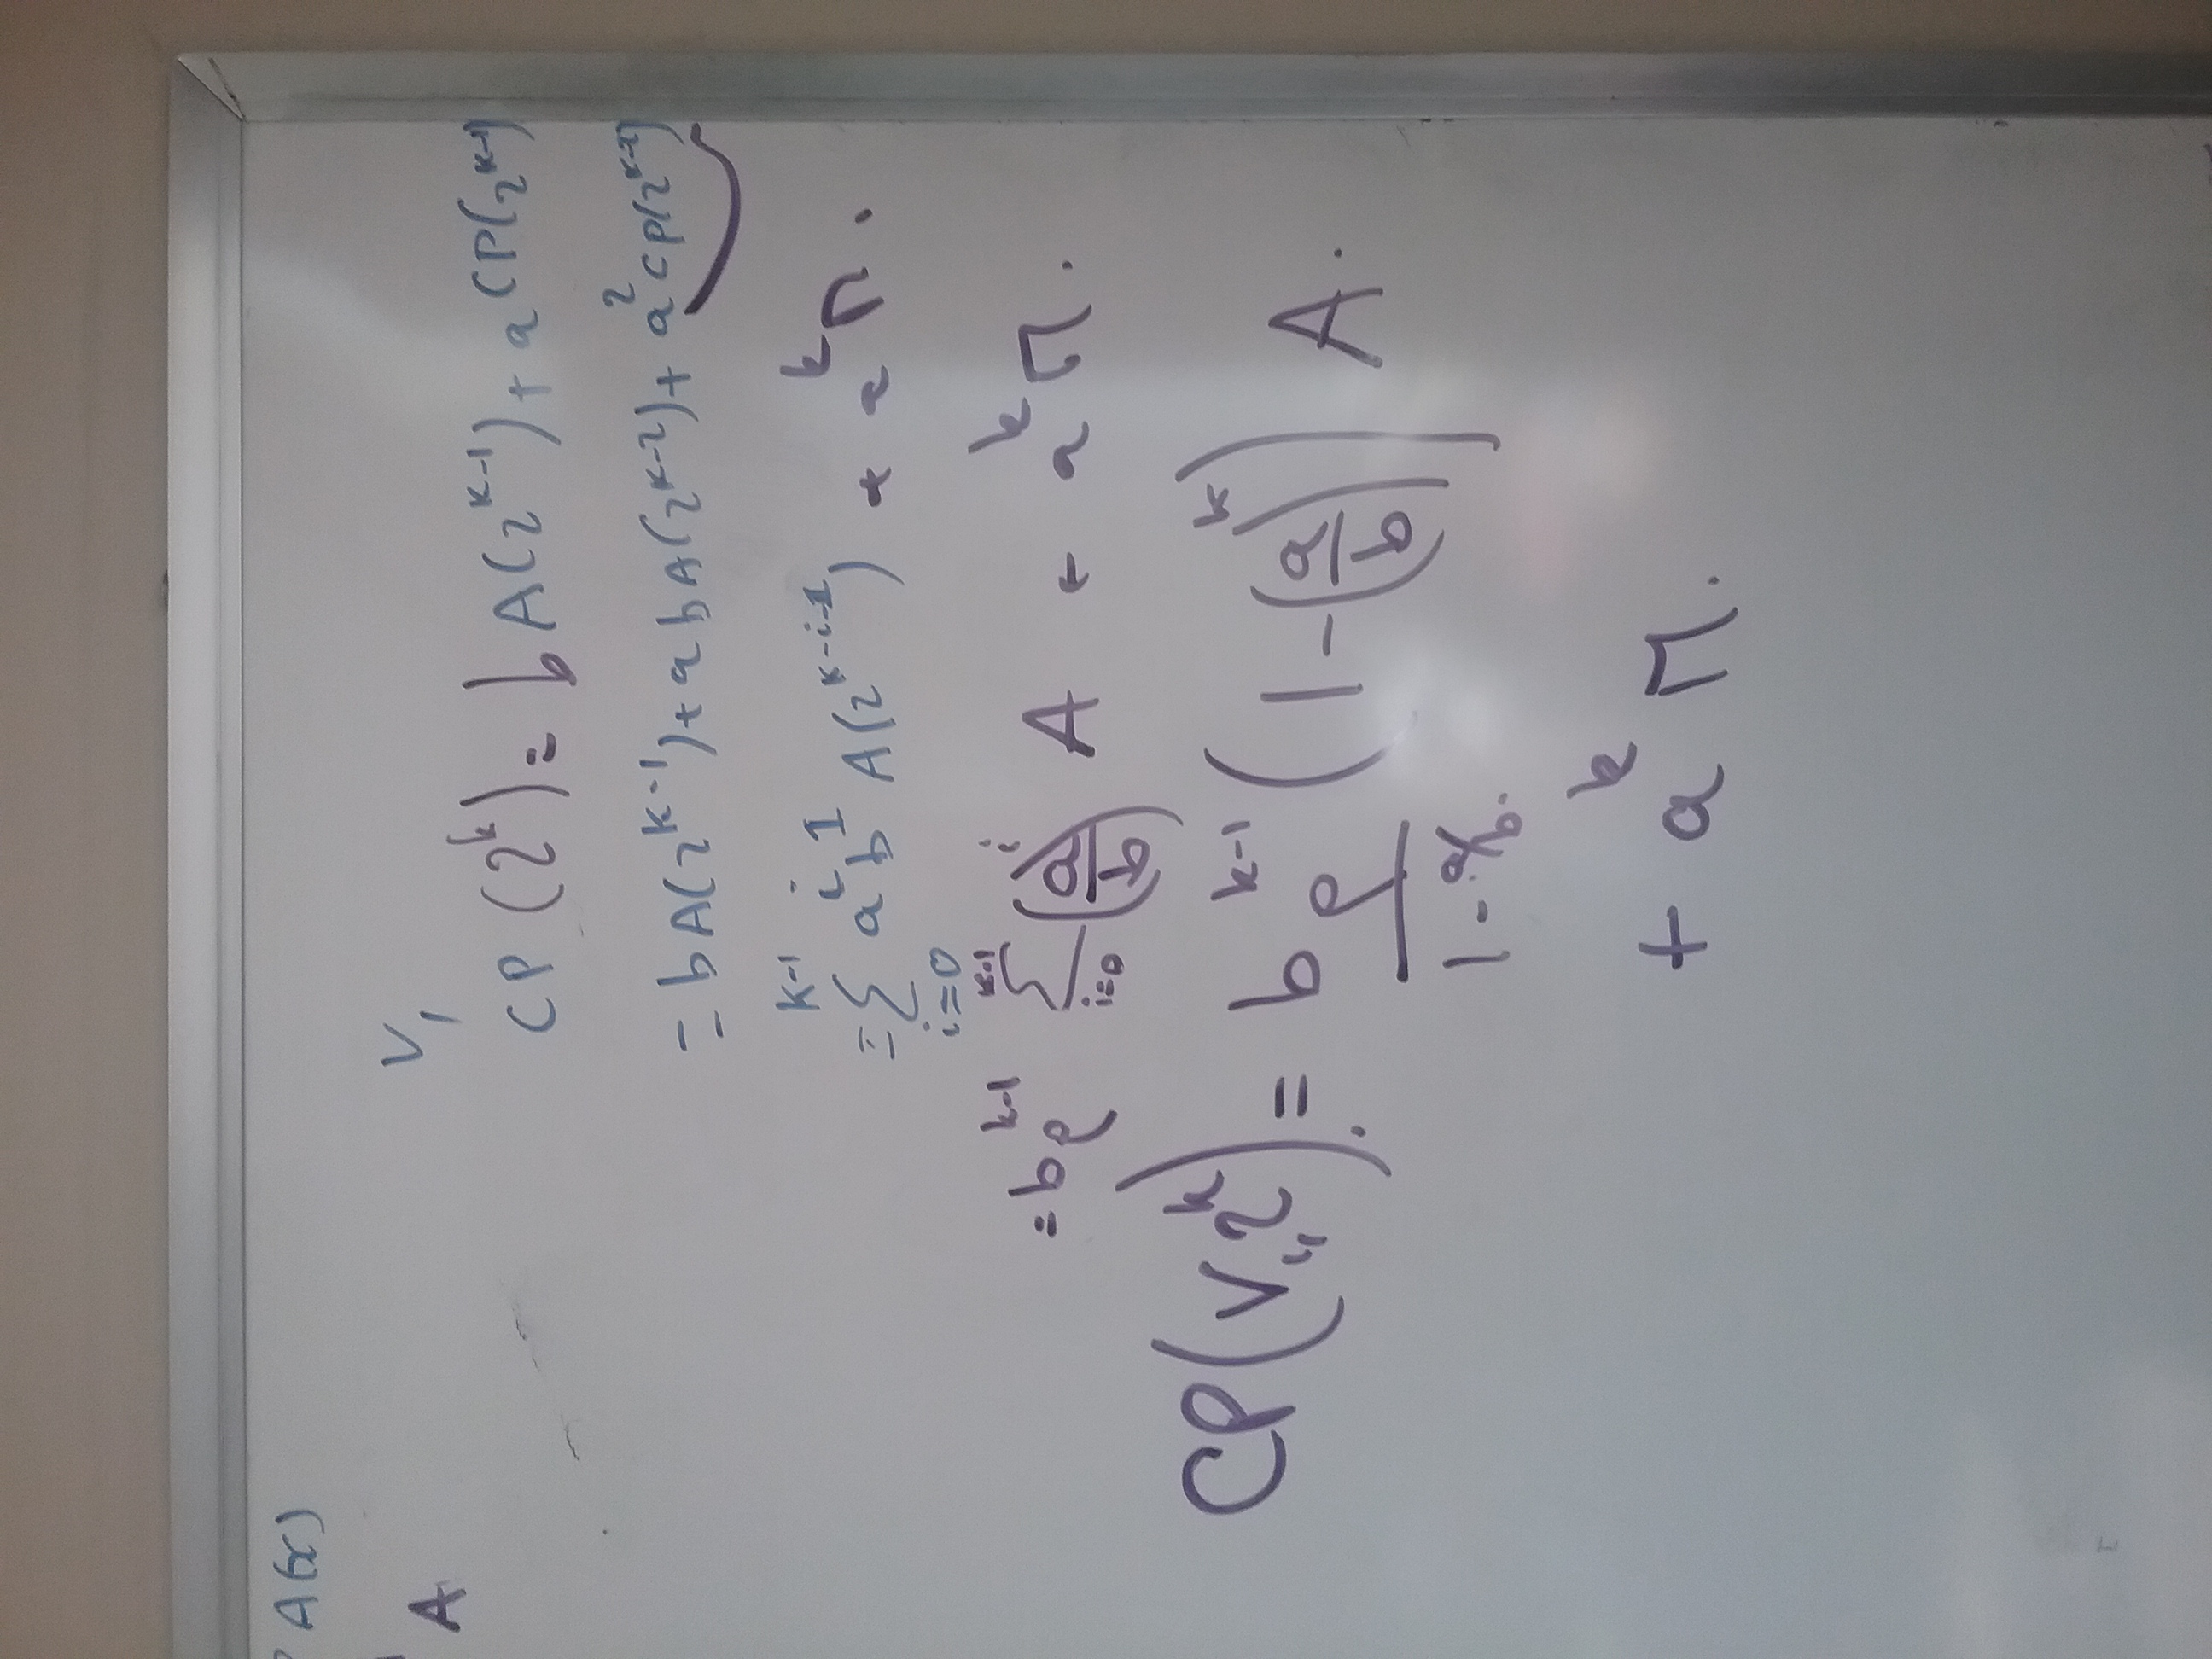 A(x)
A
V,
CP (2^k) = b A(2^{k-1}) + a CP(2^{k-1})
= b A(2^{k-1}) + a b A(2^{k-2}) + a^2 CP(2^{k-2})
= Σ_{i=0}^{k-1} a^i b^1 A(2^{k-i-1}) + a^k Π.
= b ρ^{k-1} Σ_{i=0}^{k-1} (a/b)^i A + a^k Π.
CP(V,, 2^k). = b ρ^{k-1} / (1 - a/b.) (1 - (a/b)^k) A.
+ a^k Π.